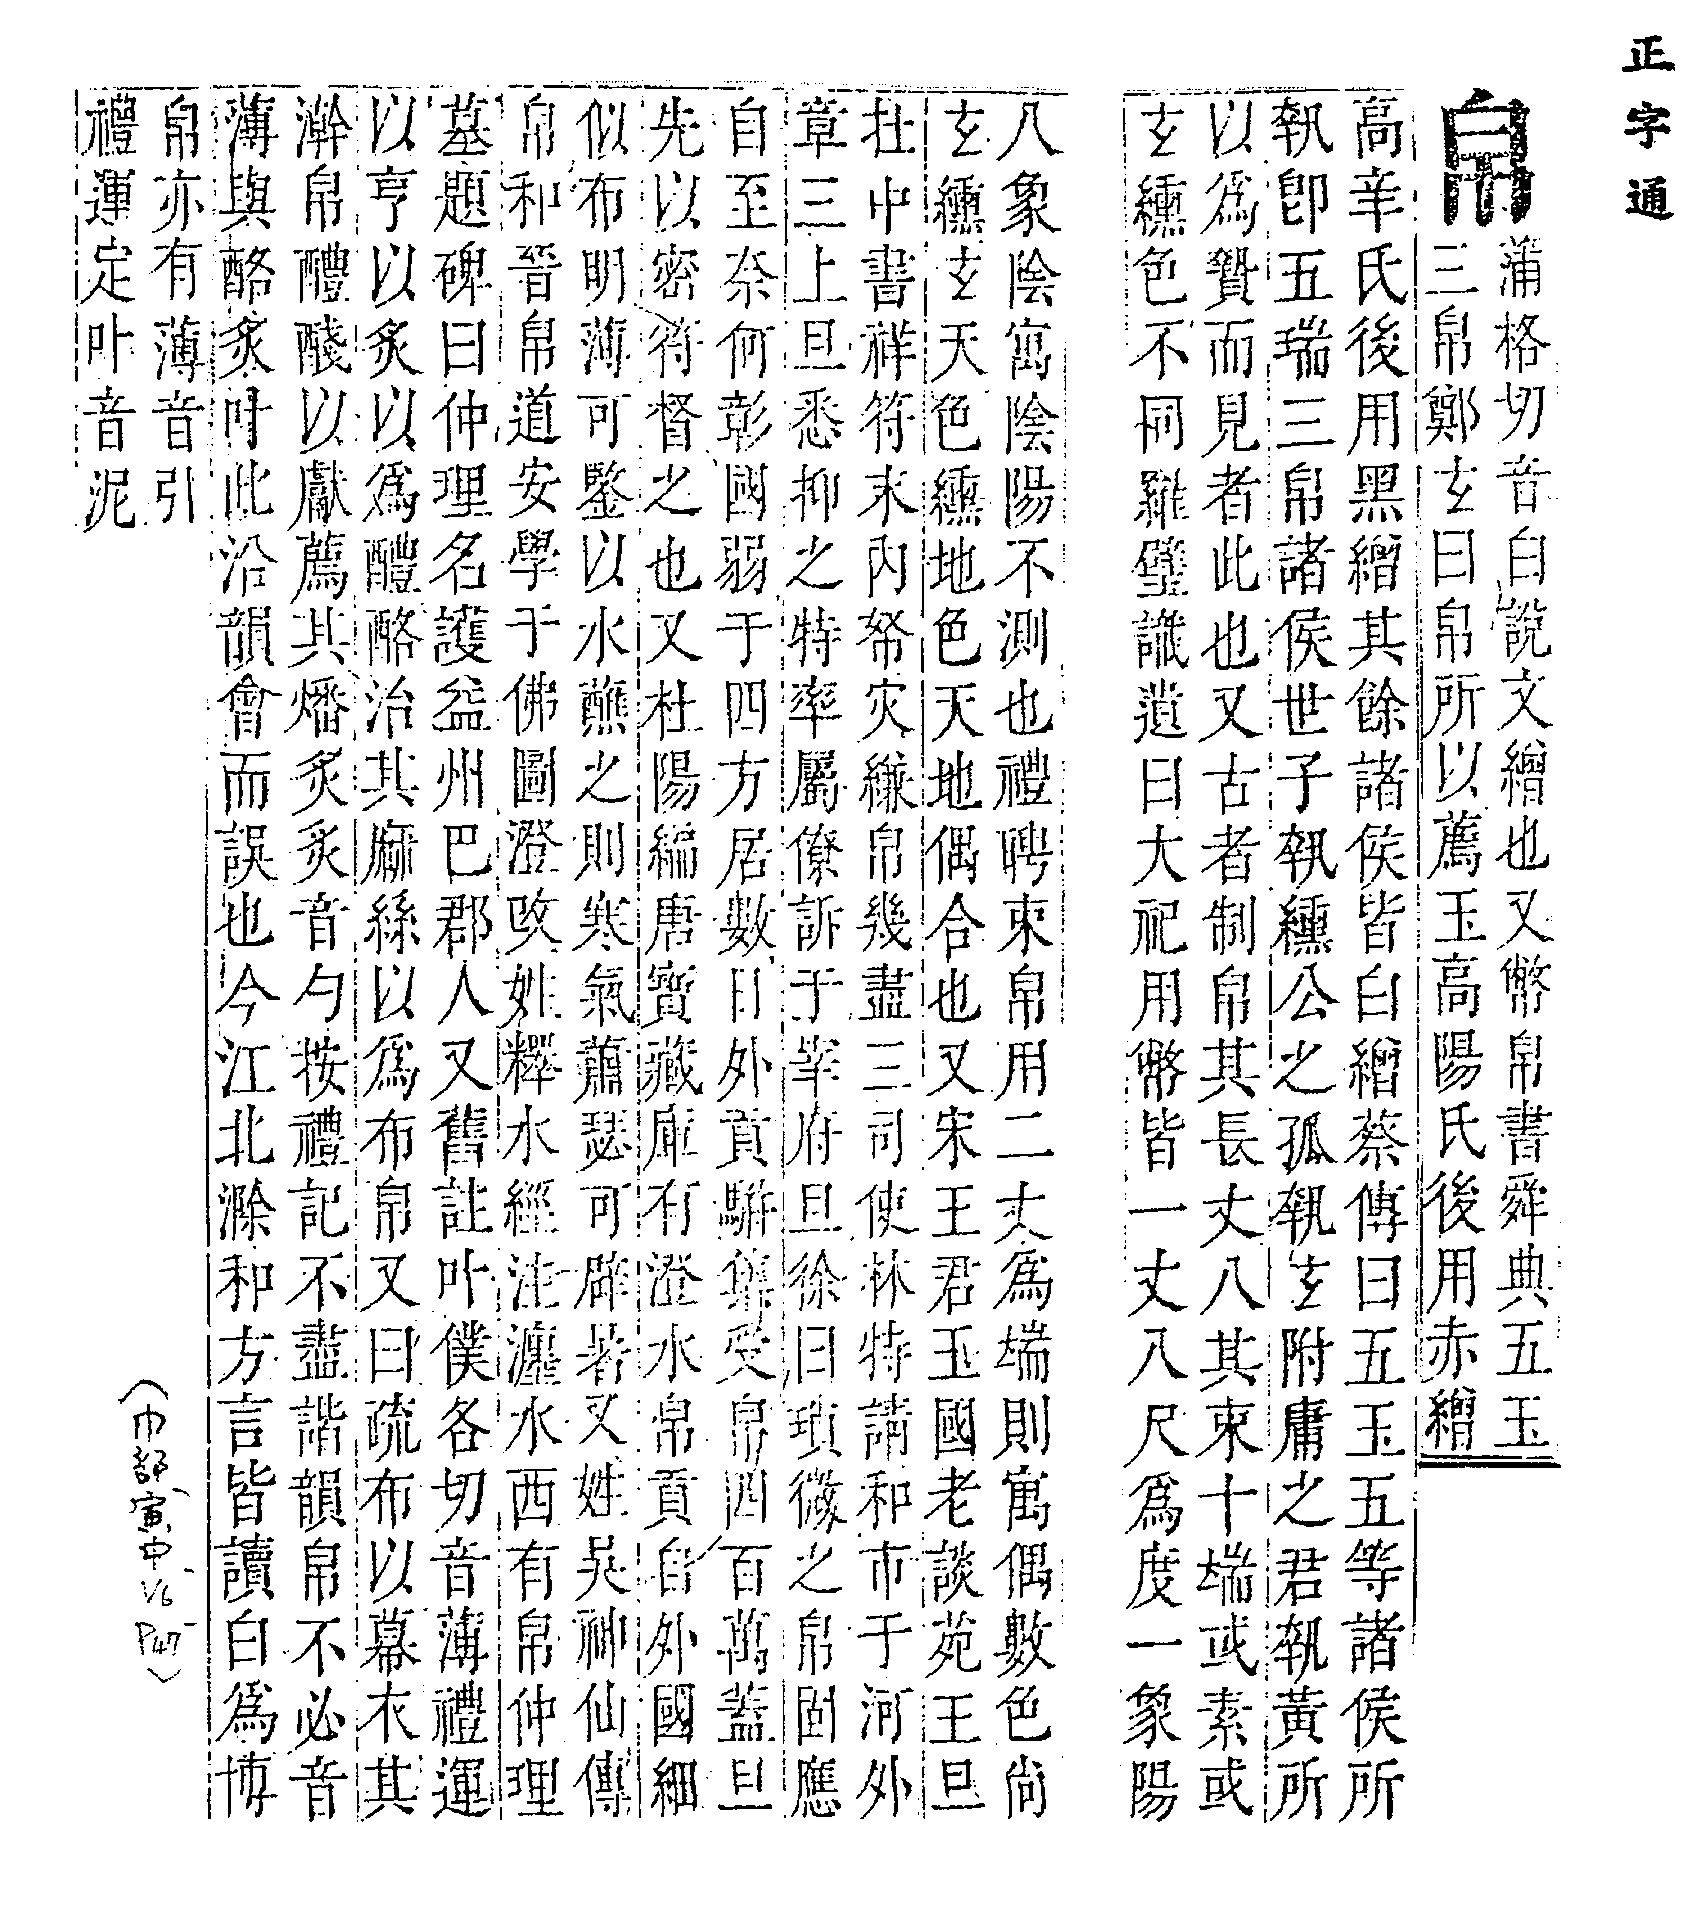 正字通
帛
蒲格切音白說文繒也又幣帛書舜典五玉
三帛鄭玄曰帛所以薦玉高陽氏後用赤繒
高辛氏後用黑繒其餘諸侯皆白繒蔡傳曰五玉五等諸侯所
執卽五瑞三帛諸侯世子執纁公之孤執玄附庸之君執黃所
以為贄而見者此也又古者制帛其長丈八其束十端或素或
玄纁色不同羅璧識遺曰大祀用幣皆一丈八尺爲度一象陽
八象陰寓陰陽不測也禮聘束帛用二丈爲端則寓偶數色尚
玄纁玄天色纁地色天地偶合也又宋王君玉國老談苑王旦
在中書祥符末內帑灾縑帛幾盡三司使林特請和市于河外
章三上旦悉抑之特率屬僚訴于宰府旦徐曰瑣微之帛固應
自至奈何彰國弱于四方居數日外貢駢集受帛四百萬蓋旦
先以密符督之也又杜陽編唐寶藏庫有澄水帛貢自外國細
似布明薄可鑒以水蘸之則寒氣蕭瑟可辟暑又姓吳神仙傳
帛和晉帛道安學于佛圖澄攺姓釋水經注瀍水西有帛仲理
墓題碑曰仲理名護益州巴郡人又舊註叶僕各切音薄禮運
以亨以炙以爲醴酪治其麻絲以爲布帛又曰疏布以幕衣其
澣帛醴醆以獻薦其燔炙炙音勺按禮記不盡諧韻帛不必音
薄與酪炙叶此沿韻會而誤也今江北滁和方言皆讀白爲博
帛亦有薄音引
禮運定叶音泥
(巾部寅中V6 P47)